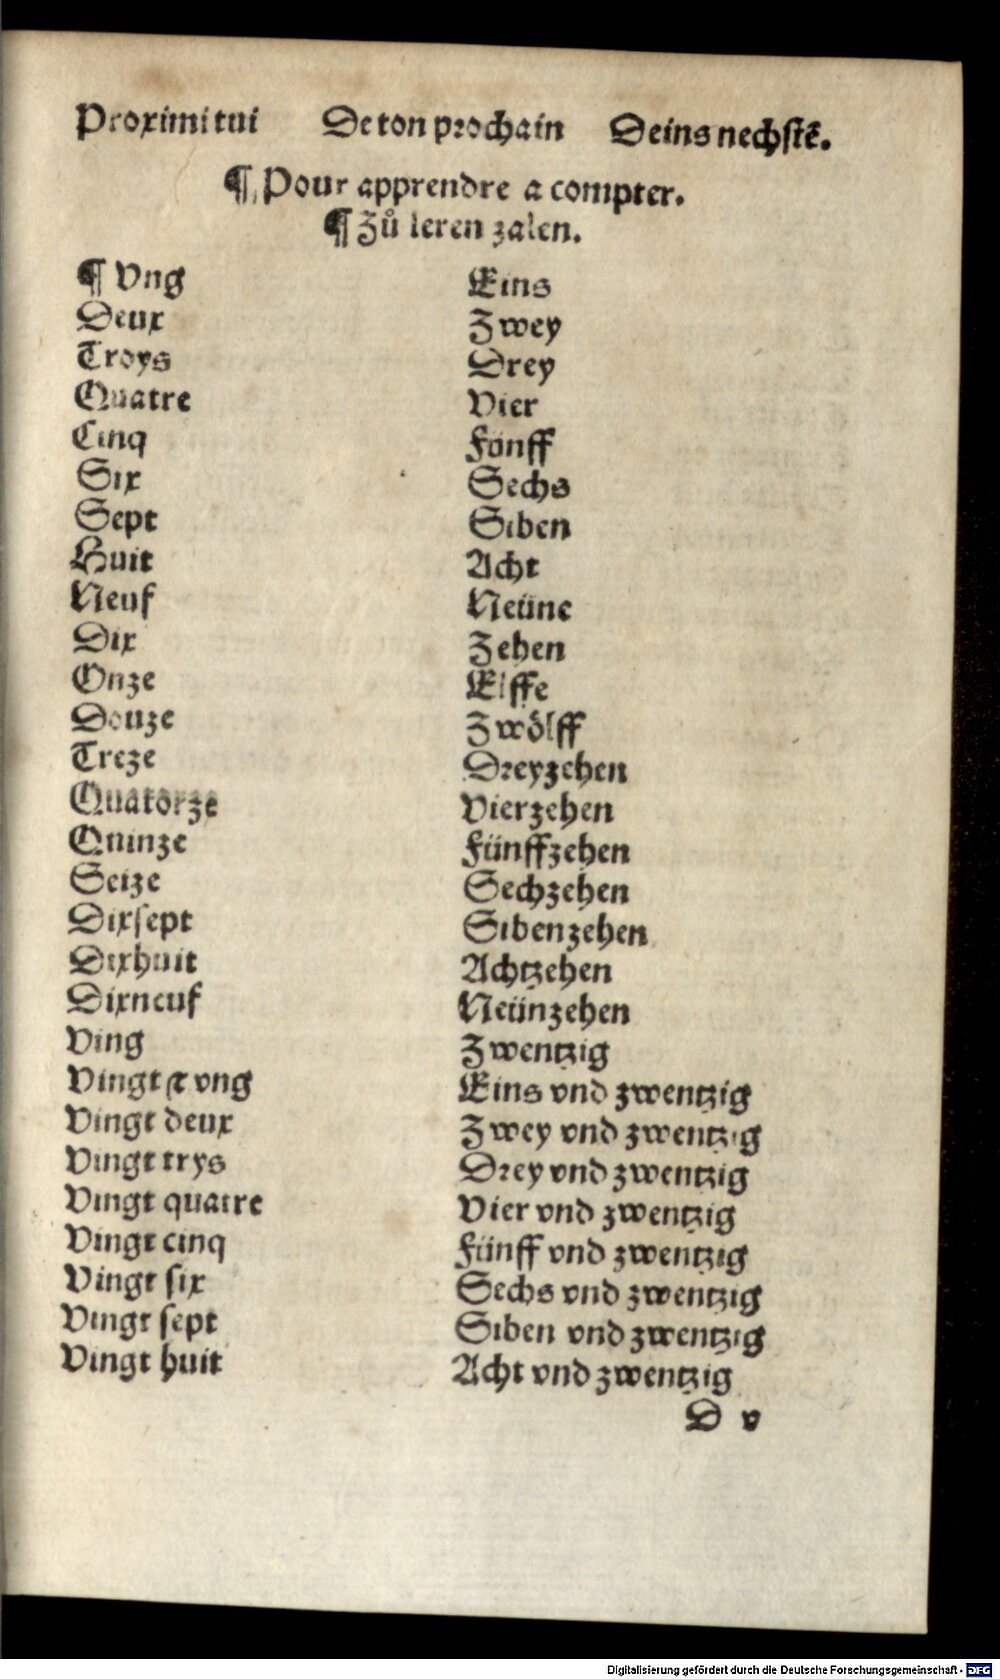 Proximi tui De ton prochain Deins nechstē.
¶ Pour apprendre a compter.
¶ Zů leren zalen.
¶ Vng Eins
Deux Zwey
Troys Drey
Quatre Vier
Cinq Fünff
Six Sechs
Sept Siben
Huit Acht
Neuf Neüne
Dix Zehen
Onze Elffe
Douze Zwölff
Treze Dreyzehen
Quatorze Vierzehen
Quinze Fünffzehen
Seize Sechzehen
Dixsept Sibenzehen
Dixhuit Achtzehen
Dixneuf Neünzehen
Ving Zwentzig
Vingt ⁊ vng Eins vnd zwentzig
Vingt deux Zwey vnd zwentzig
Vingt trys Drey vnd zwentzig
Vingt quatre Vier vnd zwentzig
Vingt cinq Fünff vnd zwentzig
Vingt six Sechs vnd zwentzig
Vingt sept Siben vnd zwentzig
Vingt huit Acht vnd zwentzig
D v
Digitalisierung gefördert durch die Deutsche Forschungsgemeinschaft - DFG